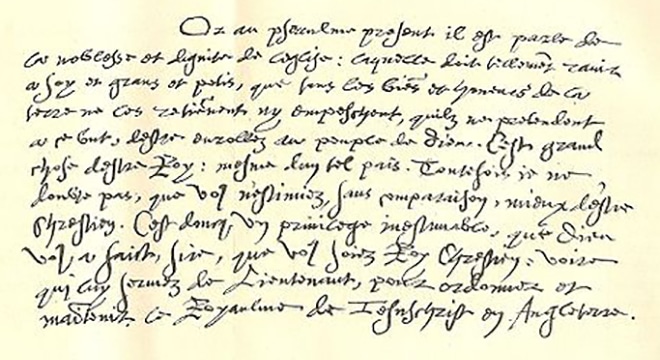 Or au pseaulme present il est parle de
la noblesse et dignite de leglise: laquelle doit tellement ravir
a soy et grans et petis, que tous les biēs et honeurs de la
terre ne les retiēnent ny empeschent, quilz ne pretendent
a ce but, destre enrollez au peuple de Dieu. Cest grand
chose destre Roy: mesme dun tel pais. Toutesfois ie ne
doubte pas, que vo⁹ nestimiez, sans comparaison, mieux destre
Chrestien. Cest doncq, un privilege inestimable, que Dieu
vo⁹ a faict, sire, que vo⁹ soiez Roy Chrestien: voire
qui luy servez de Lieutenant, pour ordonner et
maītenir le Royaulme de Iesuschrist en Angleterre.